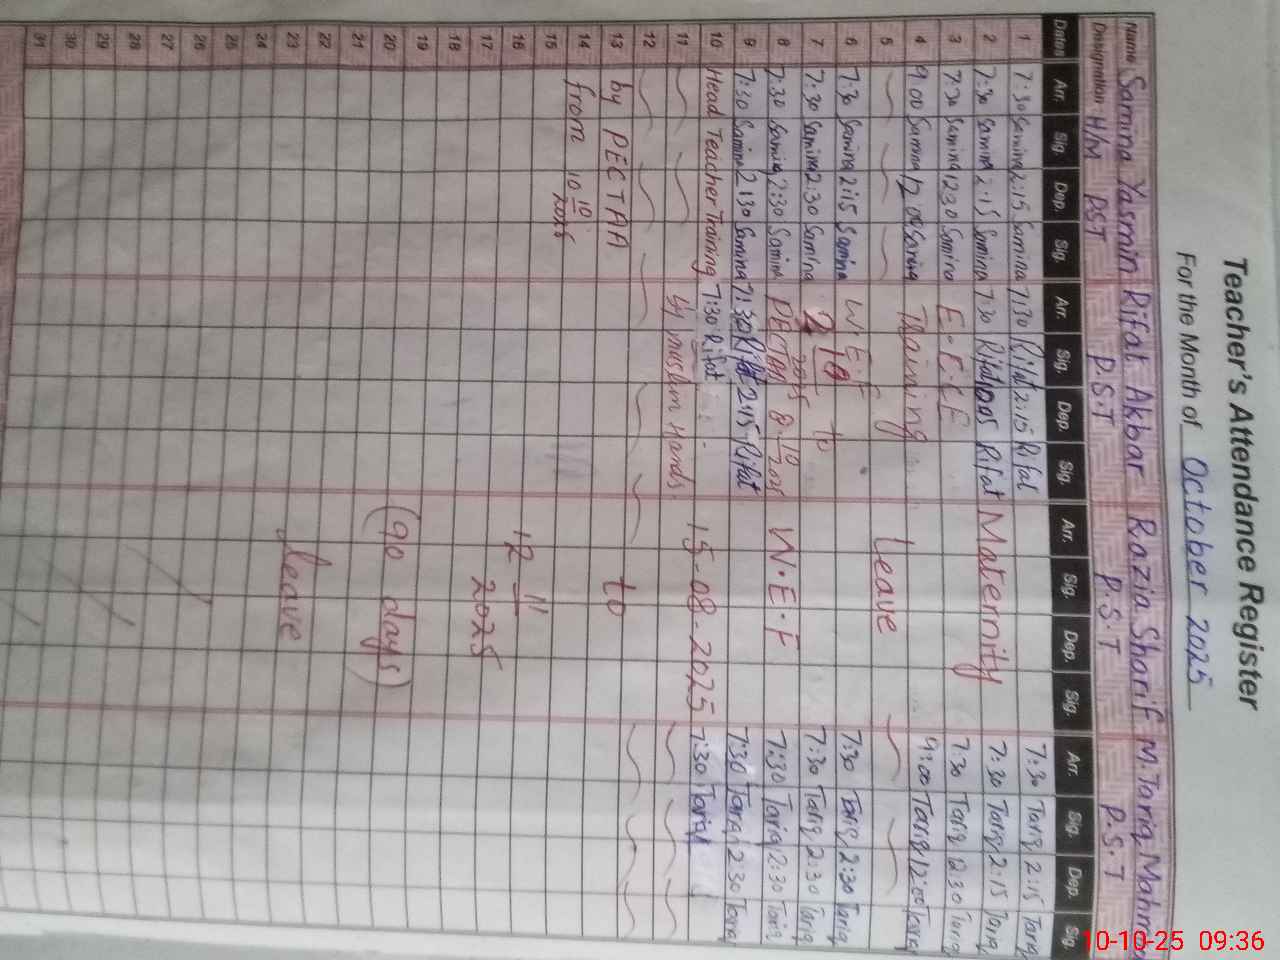 Teacher's Attendance Register
For the Month of October 2025
Name Samina Yasmin Rifat Akbar Razia Sharif M. Tariq Mahmood
Designation H/M PST P.S.T P.S.T P.S.T
Dates Arr. Sig. Dep. Sig. Arr. Sig. Dep. Sig. Arr. Sig. Dep. Sig. Arr. Sig. Dep. Sig.
1 7:30 Samina 2:15 Samina 7:30 Rifat 2:15 Rifat 7:30 Tariq 2:15 Tariq
2 7:30 Samina 2:15 Samina 7:30 Rifat Rifat Maternity 7:30 Tariq 2:15 Tariq
3 7:30 Samina 12:30 Samina E.C.C.E 7:30 Tariq 12:30 Tariq
4 9:00 Samina 12:00 Samina Training 9:00 Tariq 12:00 Tariq
5 Leave
6 7:30 Samina 2:15 Samina W.E.F 7:30 Tariq 2:30 Tariq
7 7:30 Samina 2:30 Samina 2 10 2025 to 7:30 Tariq 2:30 Tariq
8 7:30 Samina 2:30 Samina PECTAA 8 10 2025 W.E.F 7:30 Tariq 2:30 Tariq
9 7:30 Samina 2:30 Samina 7:30 Rifat 2:15 Rifat 7:30 Tariq 2:30 Tariq
10 Head Teacher Training 7:30 Rifat 15-08-2025 7:30 Tariq
11 by muslim hands
12
13 by PECTAA to
14 from 10 10 2025
15
16 12 11
17 2025
18
19
20 (90 days)
21
22
23 Leave
24
25
26
27
28
29
30
31
10-10-25 09:36